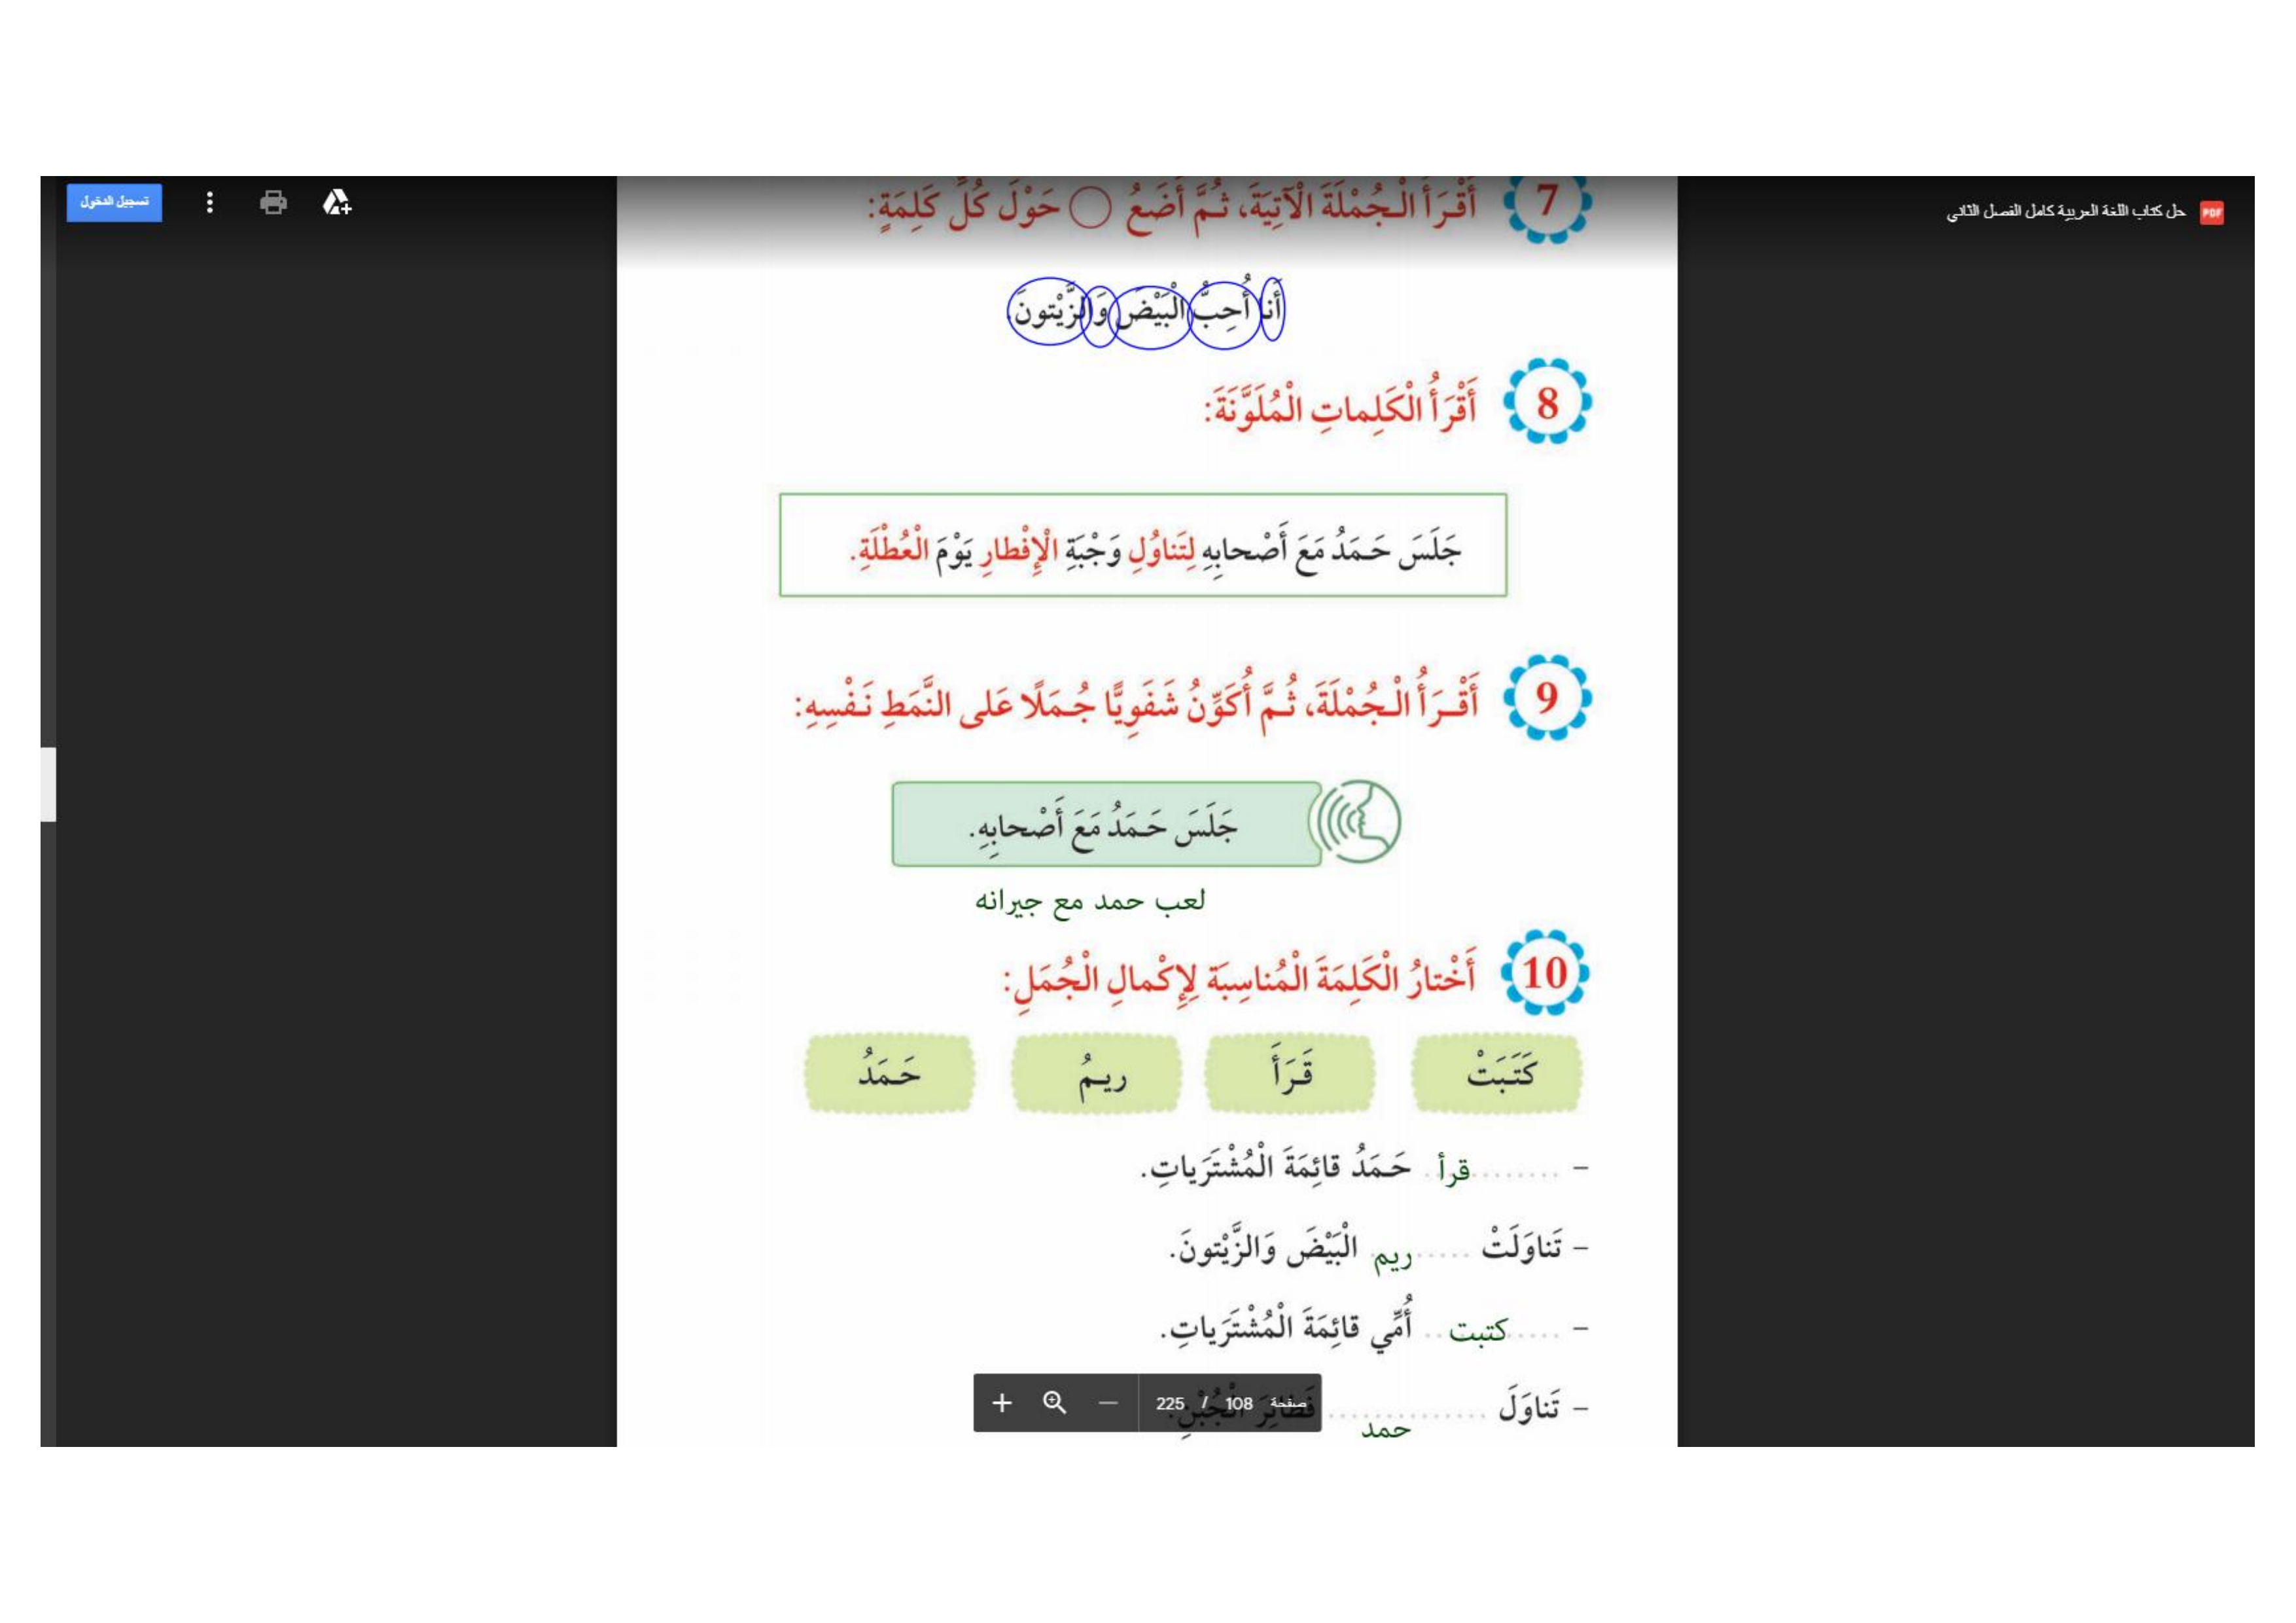 حل كتاب اللغة العربية كامل الفصل الثاني
PDF
تسجيل الدخول
7 أَقْرَأُ الْجُمْلَةَ الْآتِيَةَ، ثُمَّ أَضَعُ حَوْلَ كُلِّ كَلِمَةٍ:
أَنا أُحِبُّ الْبَيْضَ وَالزَّيْتونَ.
8 أَقْرَأُ الْكَلِماتِ الْمُلَوَّنَةَ:
جَلَسَ حَمَدُ مَعَ أَصْحابِهِ لِتَناوُلِ وَجْبَةِ الْإِفْطارِ يَوْمَ الْعُطْلَةِ.
9 أَقْرَأُ الْجُمْلَةَ، ثُمَّ أُكَوِّنُ شَفَوِيًّا جُمَلًا عَلى النَّمَطِ نَفْسِهِ:
جَلَسَ حَمَدُ مَعَ أَصْحابِهِ.
لعب حمد مع جيرانه
10 أَخْتارُ الْكَلِمَةَ الْمُناسِبَة لِإِكْمالِ الْجُمَلِ:
كَتَبَتْ قَرَأَ ريمُ حَمَدُ
– ........ قرأ . حَمَدُ قائِمَةَ الْمُشْتَرَياتِ.
– تَناوَلَتْ ..... ريم الْبَيْضَ وَالزَّيْتونَ.
– ..... كتبت .. أُمّي قائِمَةَ الْمُشْتَرَياتِ.
– تَناوَلَ .............. فَطائِرَ الْجُبْنِ.
حمد
صفحة 108 / 225